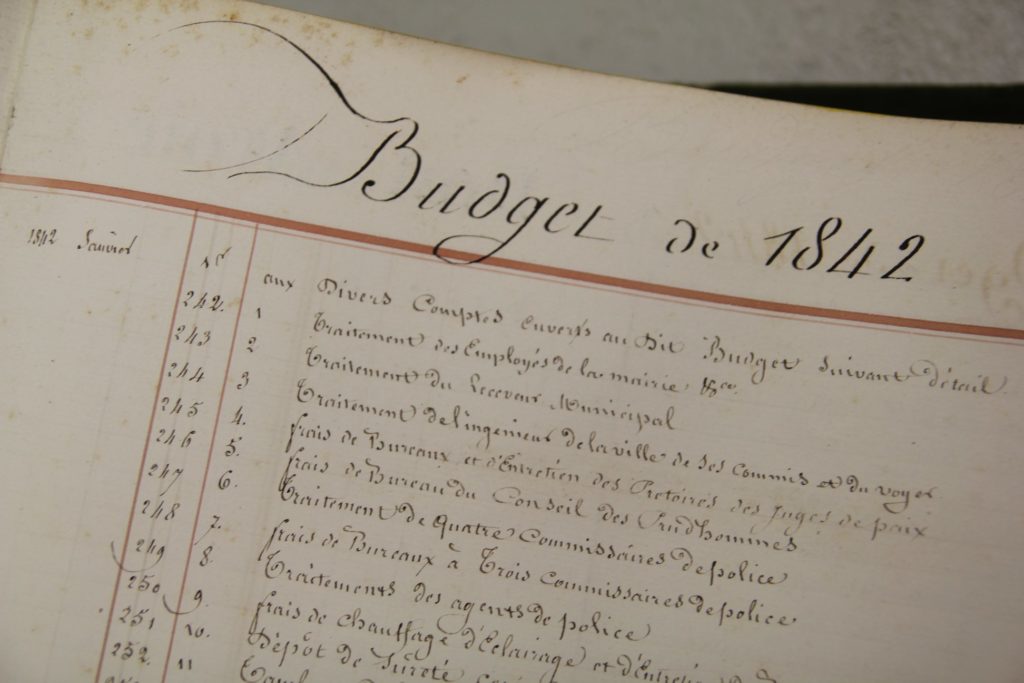 Budget de 1842
1842 Janvier
Nos aux Divers Comptes Ouverts au Dit Budget Suivant détail
242. 1 Traitement des Employés de la mairie &ca
243 2 Traitement du Receveur Municipal
244 3 Traitement de l'ingenieur de la ville de Ses Commis et du voyer
245 4. frais de Bureaux et d'Entretien des Pretoires des Juges de paix
246 5. frais de Bureau du Conseil des Prudhommes
247 6. Traitement de Quatre Commissaires de police
248 7. frais de Bureaux à Trois Commissaires de police
249 8. Traitements des agents de police
250 9. frais de Chauffage d'Eclairage et d'Entretien
251 10. Dépôt de Sûreté
252. 11